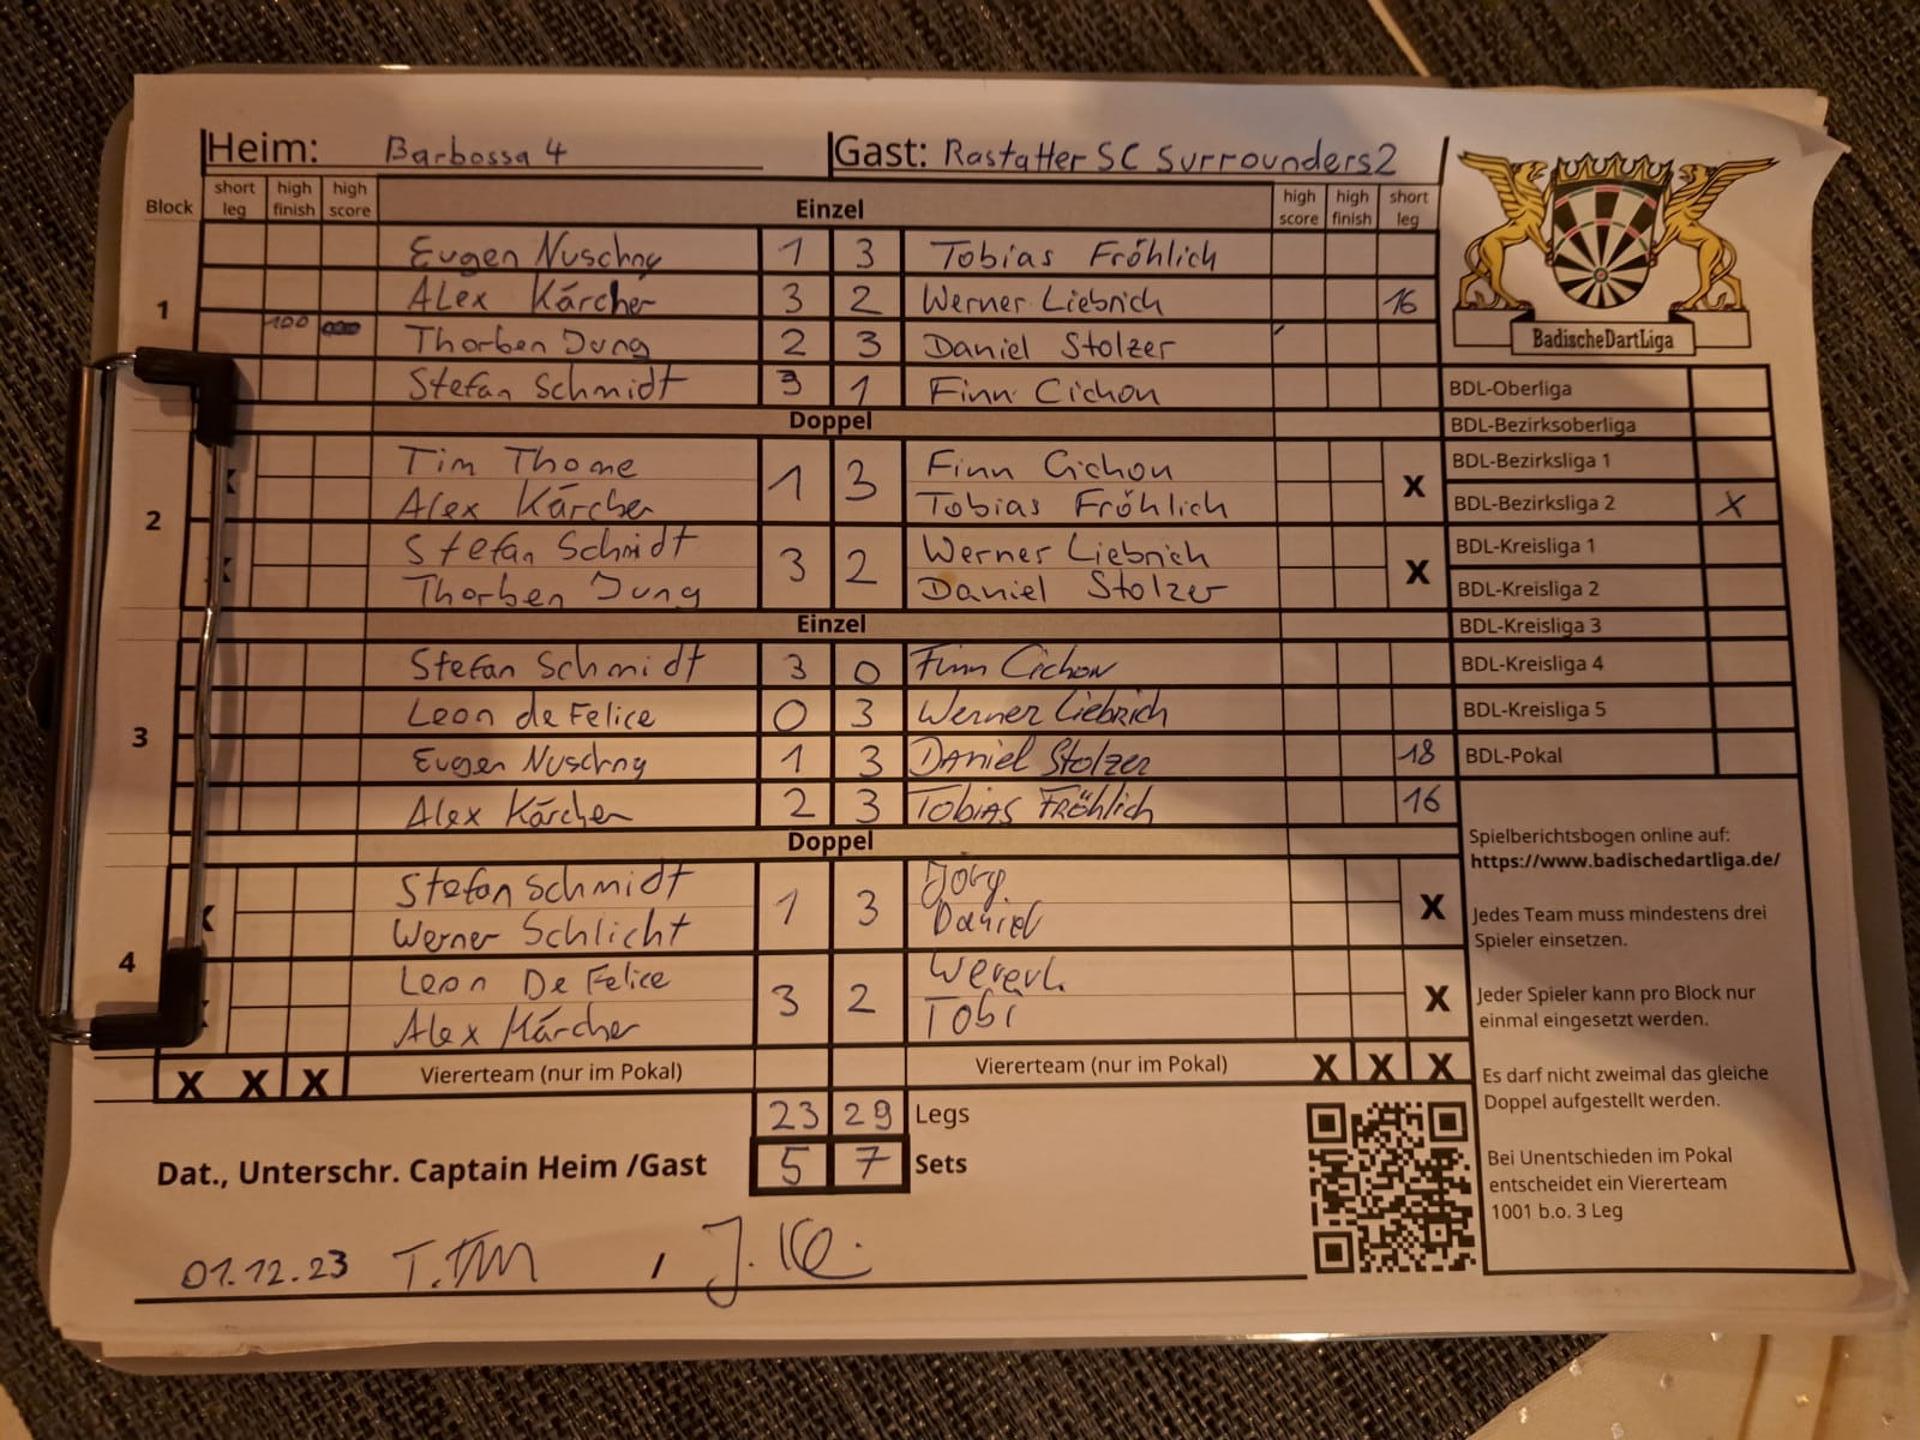 Heim: Barbossa 4 Gast: Rastatter SC Surrounders 2
Block short leg high finish high score Einzel high score high finish short leg
1
Eugen Nuschny 1 3 Tobias Fröhlich
Alex Kärcher 3 2 Werner Liebrich 16
100 Thorben Jung 2 3 Daniel Stolzer
Stefan Schmidt 3 1 Finn Cichon
Doppel
2
Tim Thome 1 3 Finn Cichon X
Alex Kärcher Tobias Fröhlich
Stefan Schmidt 3 2 Werner Liebrich X
Thorben Jung Daniel Stolzer
Einzel
3
Stefan Schmidt 3 0 Finn Cichon
Leon de Felice 0 3 Werner Liebrich
Eugen Nuschny 1 3 Daniel Stolzer 18
Alex Kärcher 2 3 Tobias Fröhlich 16
Doppel
4
Stefan Schmidt 1 3 Jörg X
Werner Schlicht Daniel
Leon De Felice 3 2 X
Alex Kärcher Tobi
X X X Viererteam (nur im Pokal) Viererteam (nur im Pokal) X X X
23 29 Legs
Dat., Unterschr. Captain Heim /Gast 5 7 Sets
01.12.23
BadischeDartLiga
BDL-Oberliga
BDL-Bezirksoberliga
BDL-Bezirksliga 1
BDL-Bezirksliga 2 X
BDL-Kreisliga 1
BDL-Kreisliga 2
BDL-Kreisliga 3
BDL-Kreisliga 4
BDL-Kreisliga 5
BDL-Pokal
Spielberichtsbogen online auf:
https://www.badischedartliga.de/
Jedes Team muss mindestens drei
Spieler einsetzen.
Jeder Spieler kann pro Block nur
einmal eingesetzt werden.
Es darf nicht zweimal das gleiche
Doppel aufgestellt werden.
Bei Unentschieden im Pokal
entscheidet ein Viererteam
1001 b.o. 3 Leg